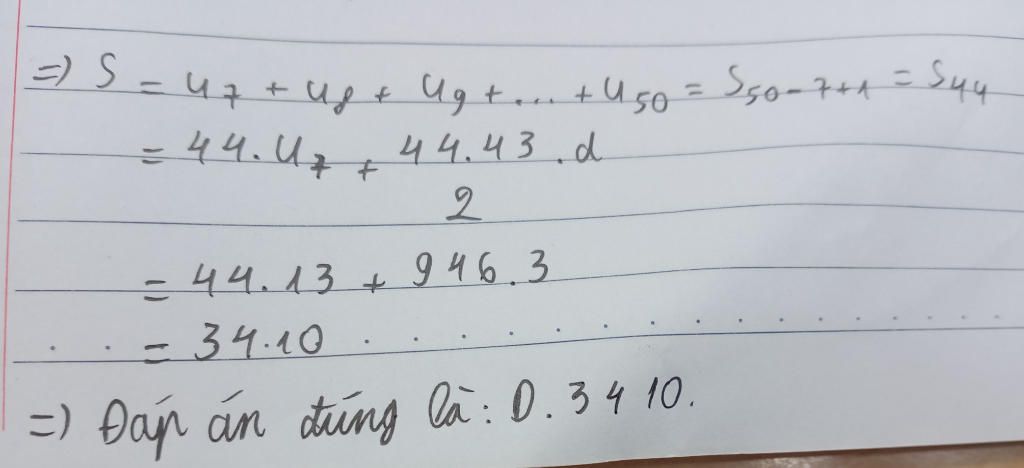 => S = u₇ + u₈ + u₉ + ... + u₅₀ = S₅₀₋₇₊₁ = S₄₄
= 44.u₇ + 44.43/2 .d
= 44.13 + 946.3
= 34.10
=> Đáp án đúng là: D. 3410.